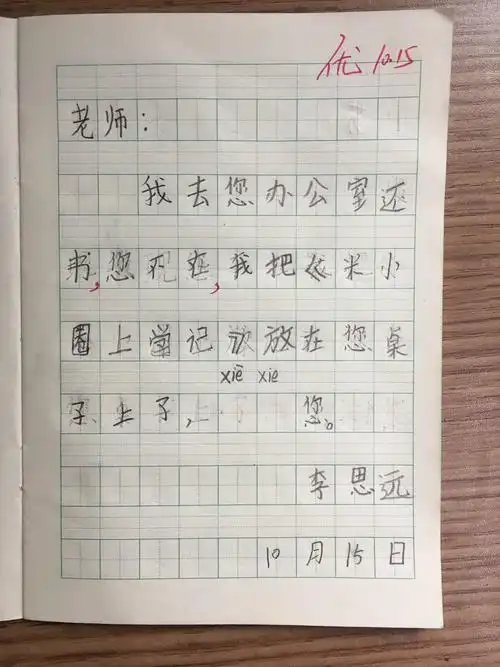 优 10.15
老师：
我去您办公室还
书，您不在，我把《米小
圈上学记》放在您桌
xiè xie
子上了，您。
李思远
10月15日